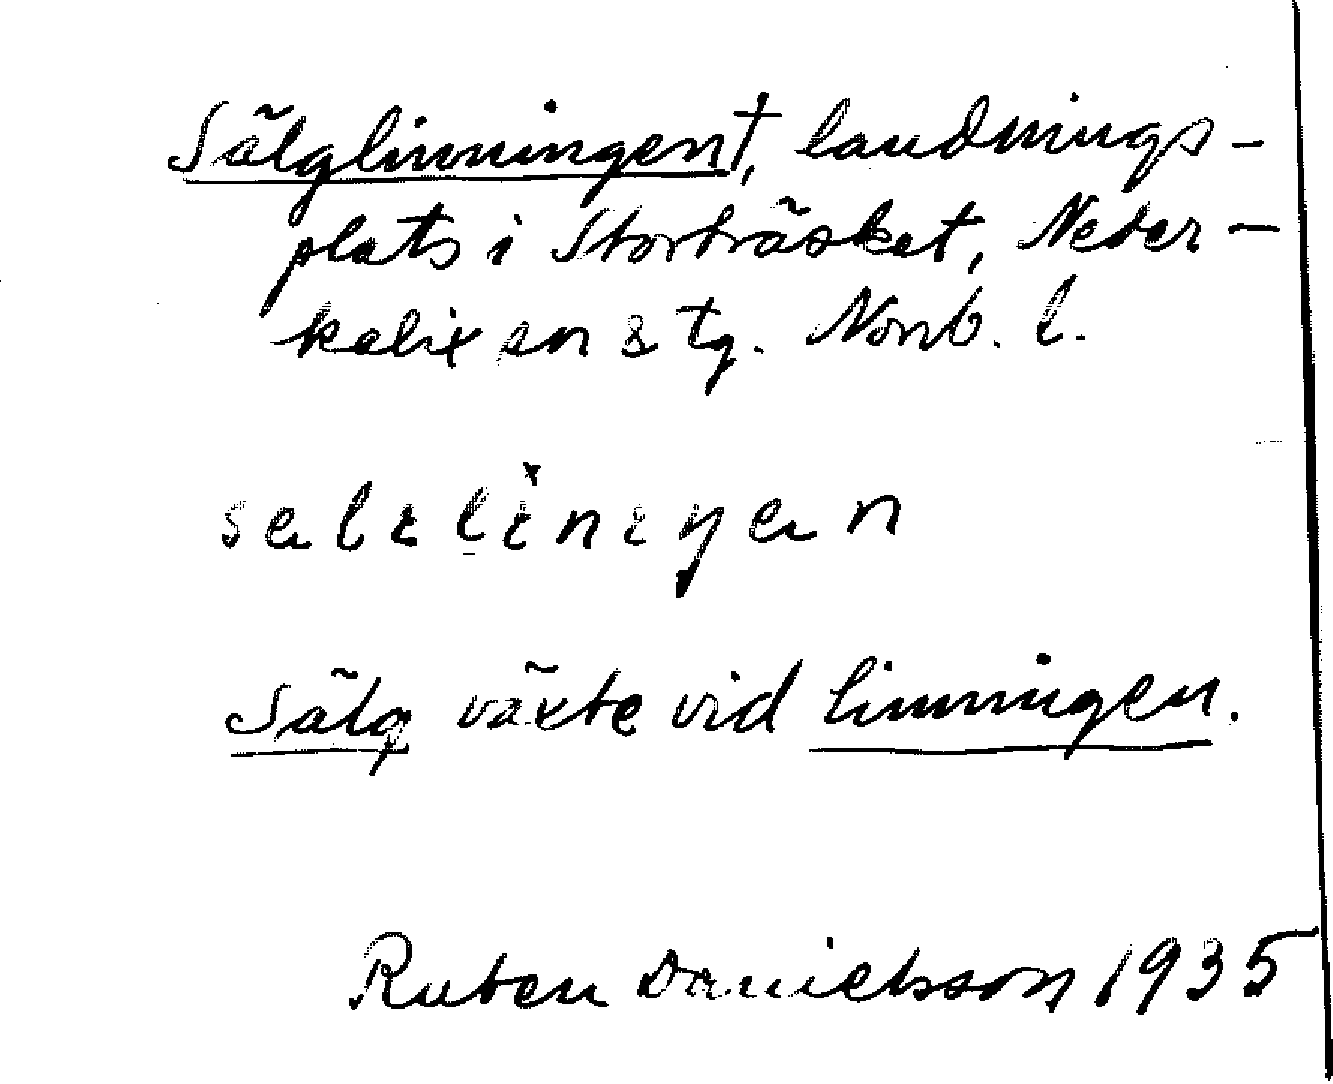 Sälglinningen†, landnings-
plats i Storträsket, Neder-
kalix sn & tg. Norrb. l.
Sälg växte vid linningen.
Ruben Danielsson 1935